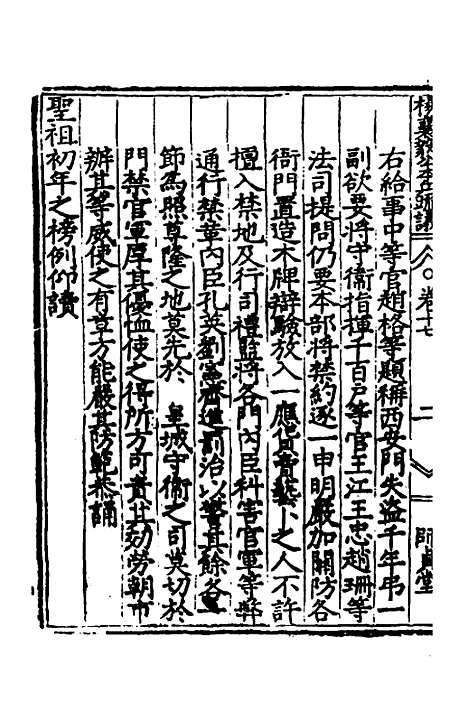 楊襄毅公本兵疏議 卷十七 二 師貞堂
右給事中等官趙格等題稱西安門失盜千年弔一
副欲要將守衛指揮千百戶等官王江王忠趙珊等
法司提問仍要本部將禁約逐一申明嚴加關防各
衙門置造木牌辯驗放入一應貨賣藝卜之人不許
擅入禁地及行司禮監將各門內臣科害官軍等弊
通行禁革內臣孔英劉憲齊進罰治以警其餘各一
節為照尊隆之地莫先於 皇城守衛之司莫切於
門禁官軍厚其優恤使之得所方可責其効勞朝巾
辦其等威使之有章方能嚴其防範恭誦
聖祖初年之榜例仰讀